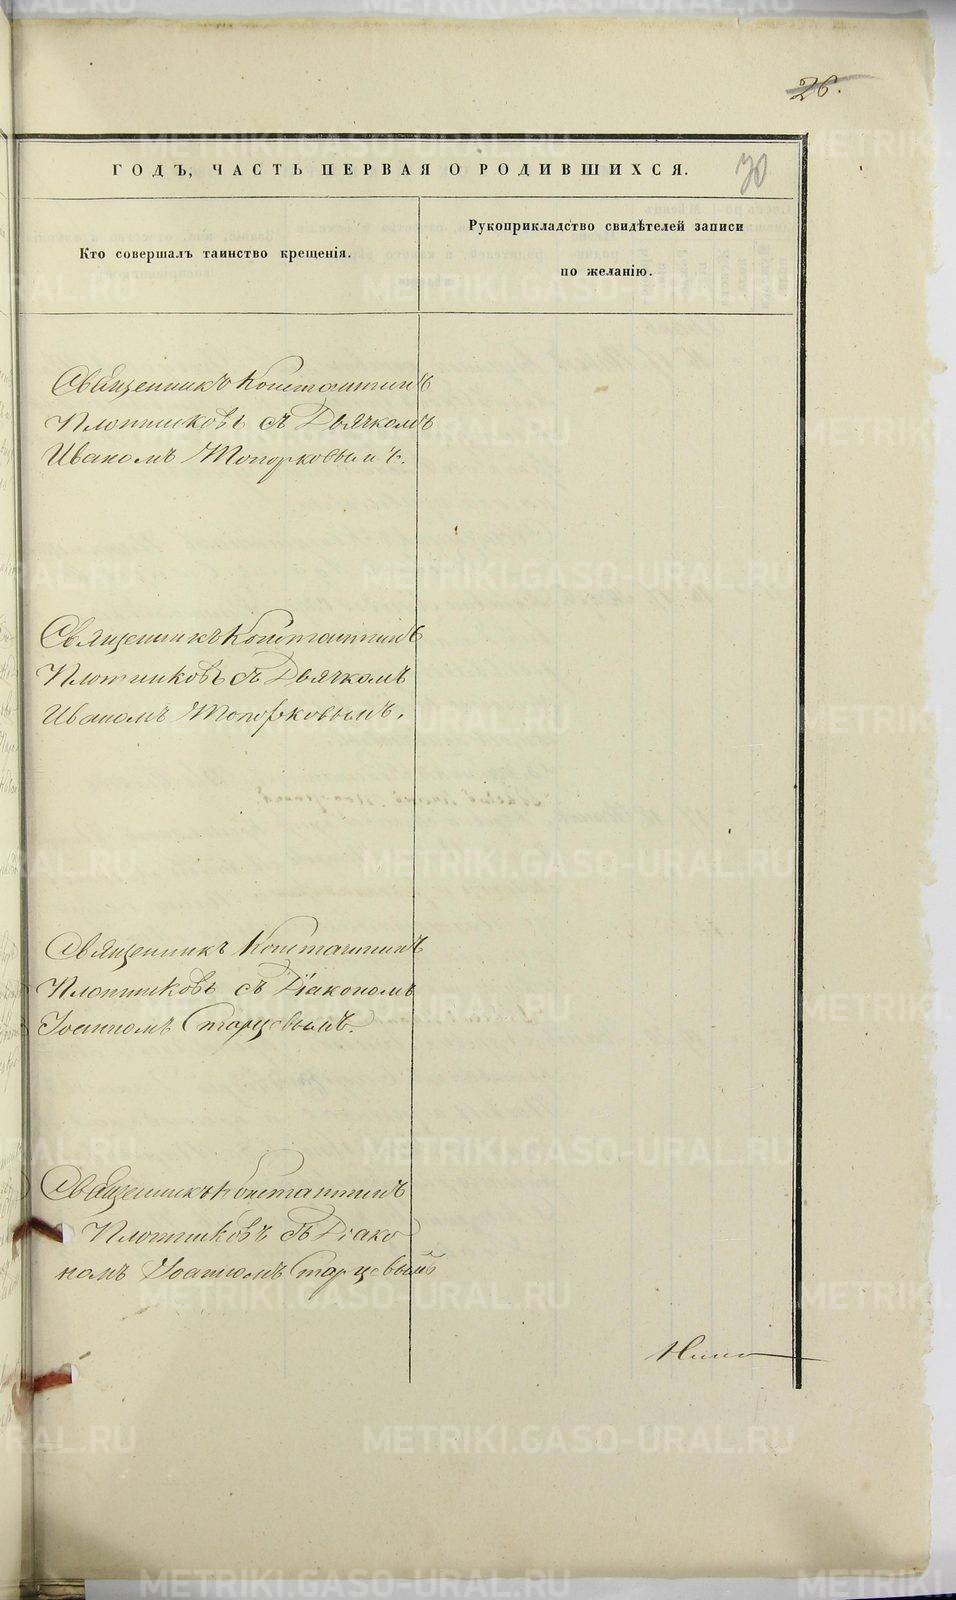 26.
ГОДЪ, ЧАСТЬ ПЕРВАЯ О РОДИВШИХСЯ.
30
Кто совершалъ таинство крещенія.
Рукоприкладство свидѣтелей записи
по желанію.
Священникъ Константинъ
Плотниковъ съ Дьячкомъ
Иваномъ Топорковымъ.
Священникъ Константинъ
Плотниковъ съ Дьячкомъ
Иваномъ Топорковымъ.
Священникъ Константинъ
Плотниковъ съ Діакономъ
Іоанномъ Старцевымъ.
Священникъ Константинъ
Плотниковъ съ Діако
номъ Іоанномъ Старцевымъ
METRIKI.GASO-URAL.RU